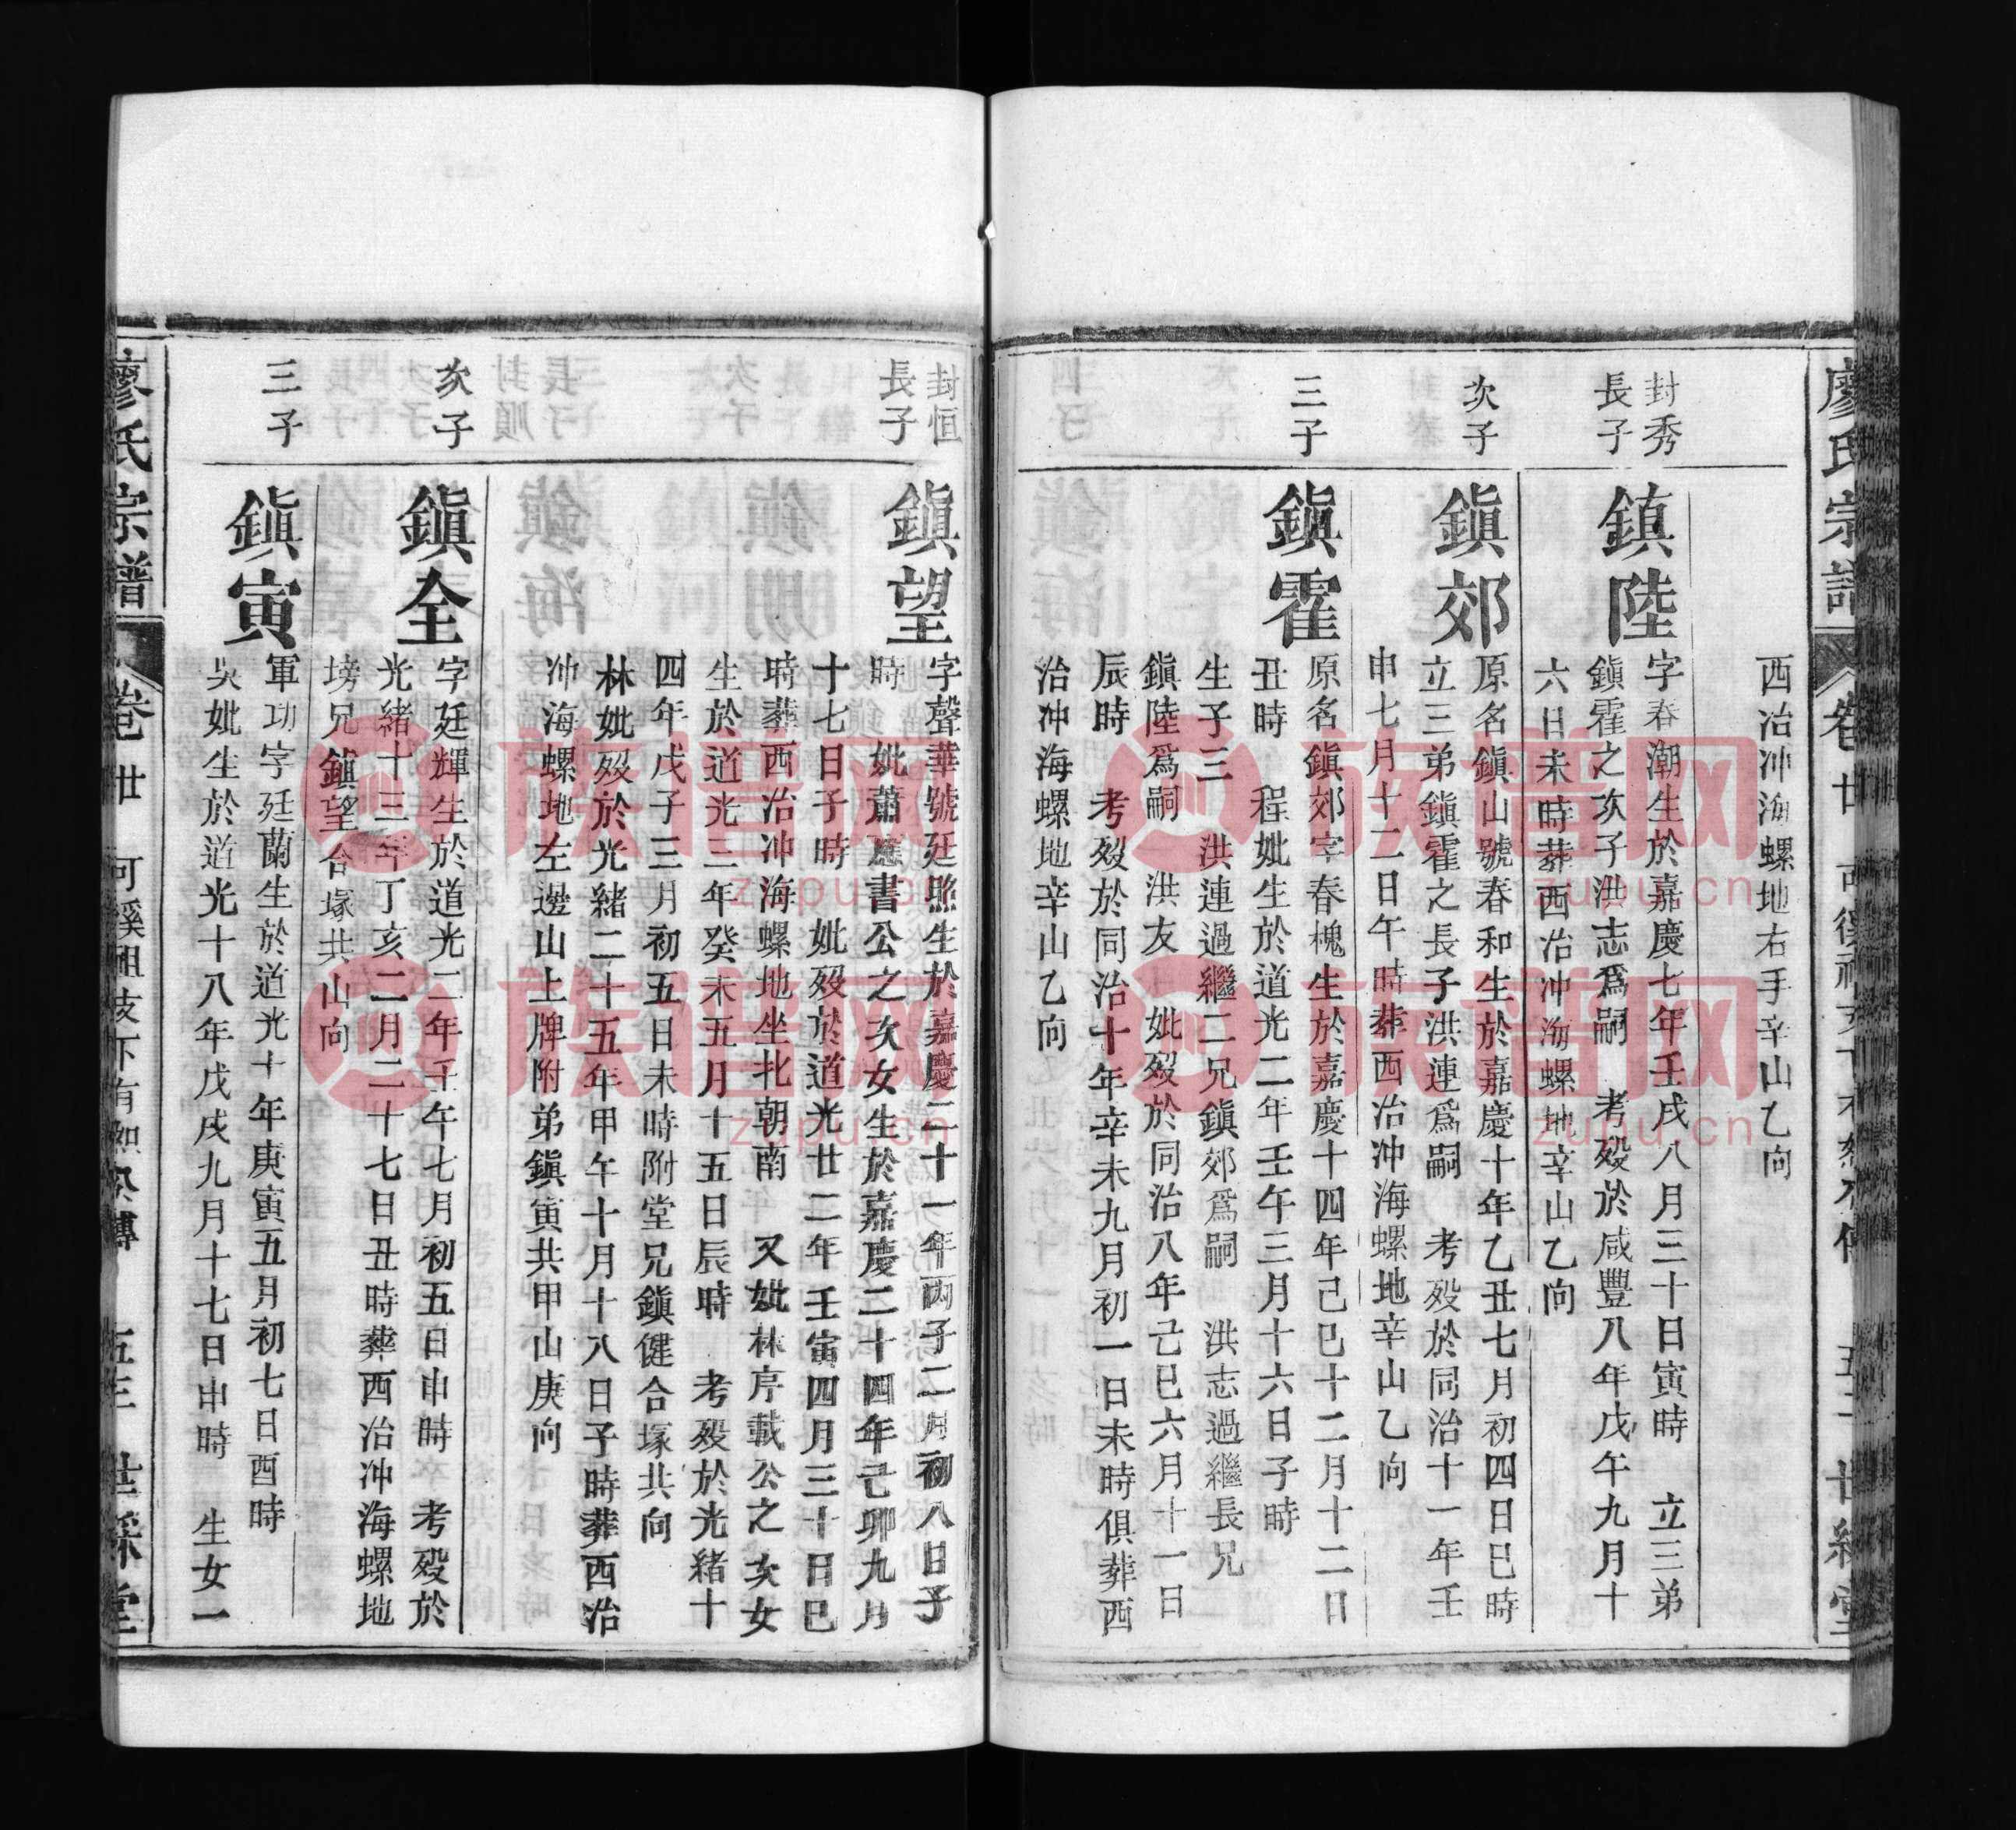 廖氏宗譜
卷廿
西冶冲海螺地右手辛山乙向
封秀
長子
鎮陸
字春潮生於嘉慶七年壬戌八月三十日寅時 立三弟
鎮霍之次子洪志爲嗣 考歿於咸豐八年戊午九月十
六日未時葬西冶冲海螺地辛山乙向
次子
鎮郊
原名鎮山號春和生於嘉慶十年乙丑七月初四日巳時
立三弟鎮霍之長子洪連爲嗣 考歿於同治十一年壬
申七月十二日午時葬西冶冲海螺地辛山乙向
三子
鎮霍
原名鎮郊字春槐生於嘉慶十四年己巳十二月十二日
丑時 程妣生於道光二年壬午三月十六日子時
生子三 洪連過繼二兄鎮郊爲嗣 洪志過繼長兄
鎮陸爲嗣 洪友 妣歿於同治八年己巳六月十一日
辰時 考歿於同治十年辛未九月初一日未時俱葬西
冶冲海螺地辛山乙向
封恒
長子
鎮望
字聲華號廷照生於嘉慶二十一年丙子二月初八日子
時 妣蕭應書公之次女生於嘉慶二十四年己卯九月
十七日子時 妣歿於道光廿二年壬寅四月三十日巳
時葬西冶冲海螺地坐北朝南 又妣林序載公之次女
生於道光三年癸未五月十五日辰時 考歿於光緒十
四年戊子三月初五日未時附堂兄鎮健合塚共向
林妣歿於光緒二十五年甲午十月十八日子時葬西冶
冲海螺地左邊山上牌附弟鎮寅共甲山庚向
次子
鎮全
字廷輝生於道光二年壬午七月初五日申時卒 考歿於
光緒十三年丁亥二月二十七日丑時葬西冶冲海螺地
塝兄鎮望合塚共山向
三子
鎮寅
軍功字廷蘭生於道光十年庚寅五月初七日酉時
吳妣生於道光十八年戊戌九月十七日申時 生女一
廖氏宗譜
卷廿
可溪祖支下有
五三
世綵堂
族谱网
zupu.cn
族谱网
zupu.cn
族谱网
zupu.cn
族谱网
zupu.cn